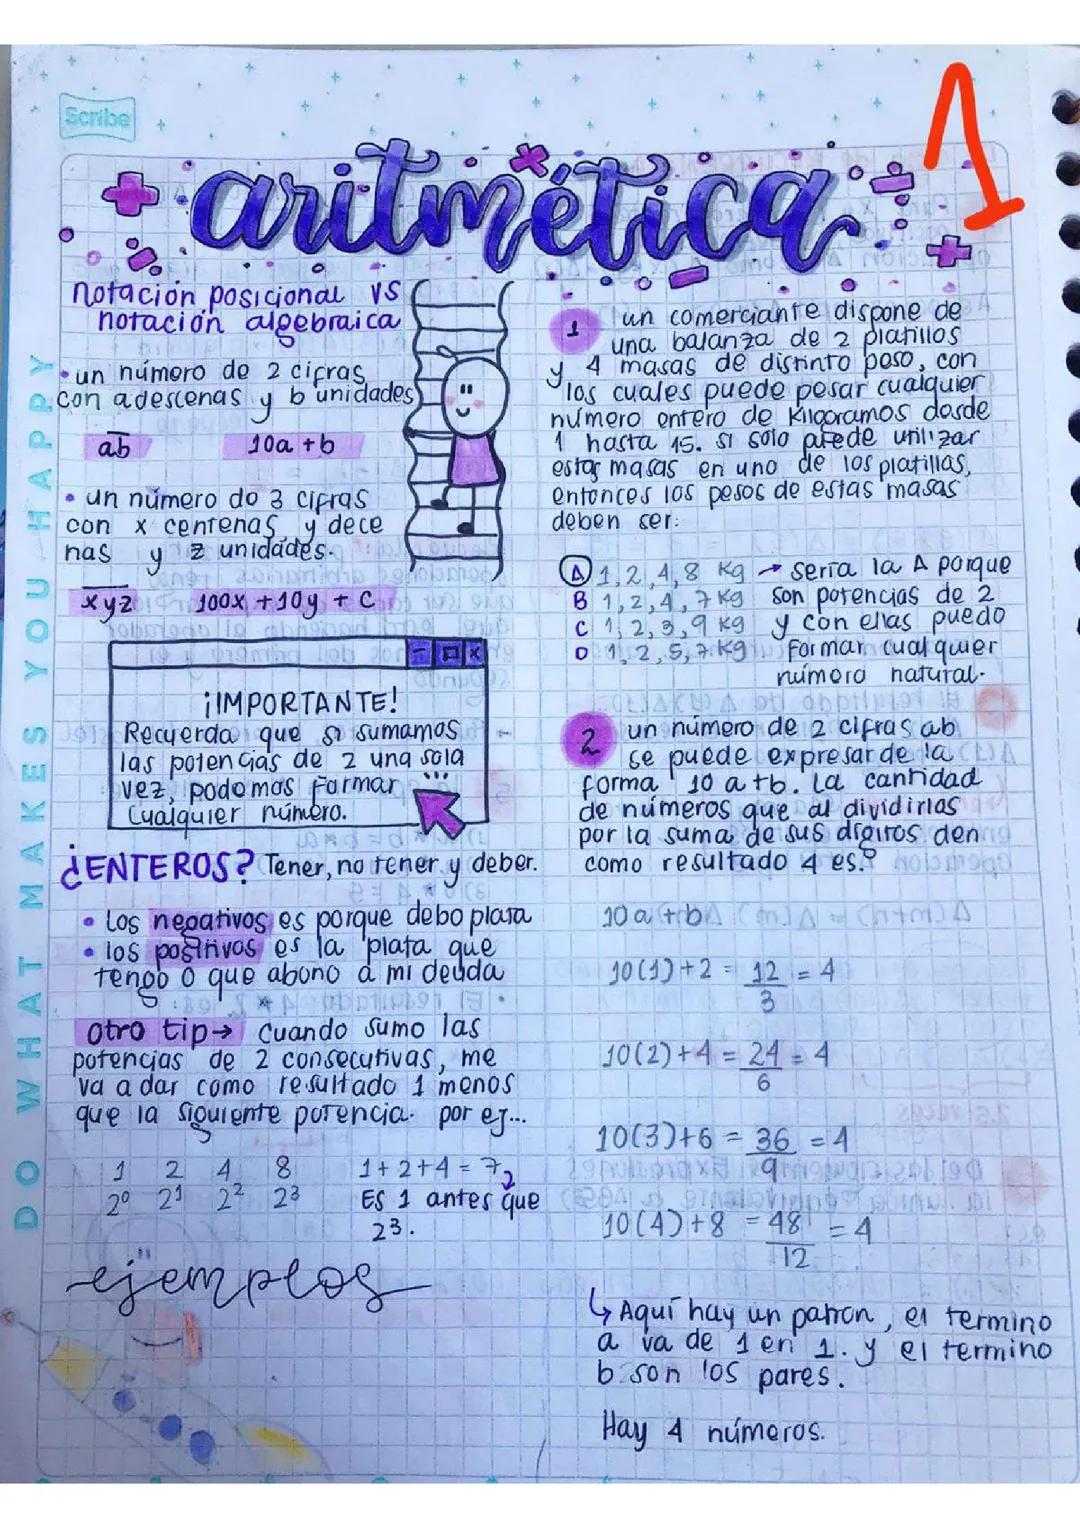 Scribe
1
aritmética
notación posicional vs
notación algebraica
• un número de 2 cifras
con a descenas y b unidades
ab 10a + b
• un número do 3 cifras
con x centenas y dece
nas y z unidades.
xyz 100x + 10y + C
¡IMPORTANTE!
Recuerda que si sumamos
las potencias de 2 una sola
vez, podemos formar
cualquier número.
¿ENTEROS? Tener, no tener y deber.
• Los negativos es porque debo plata
• los positivos es la plata que
tengo o que abono a mi deuda
otro tip→ cuando sumo las
potencias de 2 consecutivas, me
va a dar como resultado 1 menos
que la siguiente potencia. por ej...
1 2 4 8 1 + 2 + 4 = 7,
2⁰ 2¹ 2² 2³ Es 1 antes que
2³.
ejemplos
1 un comerciante dispone de
una balanza de 2 platillos
y 4 masas de distinto peso, con
los cuales puede pesar cualquier
número entero de kilogramos desde
1 hasta 15. si solo puede utilizar
estas masas en uno de los platillas,
entonces los pesos de estas masas
deben ser:
A 1, 2, 4, 8 Kg → sería la A porque
B 1, 2, 4, 7 Kg son potencias de 2
C 1, 2, 3, 9 Kg y con ellas puedo
D 1, 2, 5, 7 Kg. formar cualquier
número natural.
2 un número de 2 cifras ab
se puede expresar de la
forma 10 a + b. La cantidad
de números que al dividirlas
por la suma de sus dígitos den
como resultado 4 es?
10a + b
10(1) + 2 = 12 = 4
3
10(2) + 4 = 24 = 4
6
10(3) + 6 = 36 = 4
9
10(4) + 8 = 48 = 4
12
↳ Aquí hay un patron, el termino
a va de 1 en 1. y el termino
b son los pares.
Hay 4 números.
DO WHAT MAKES YOU HAPPY